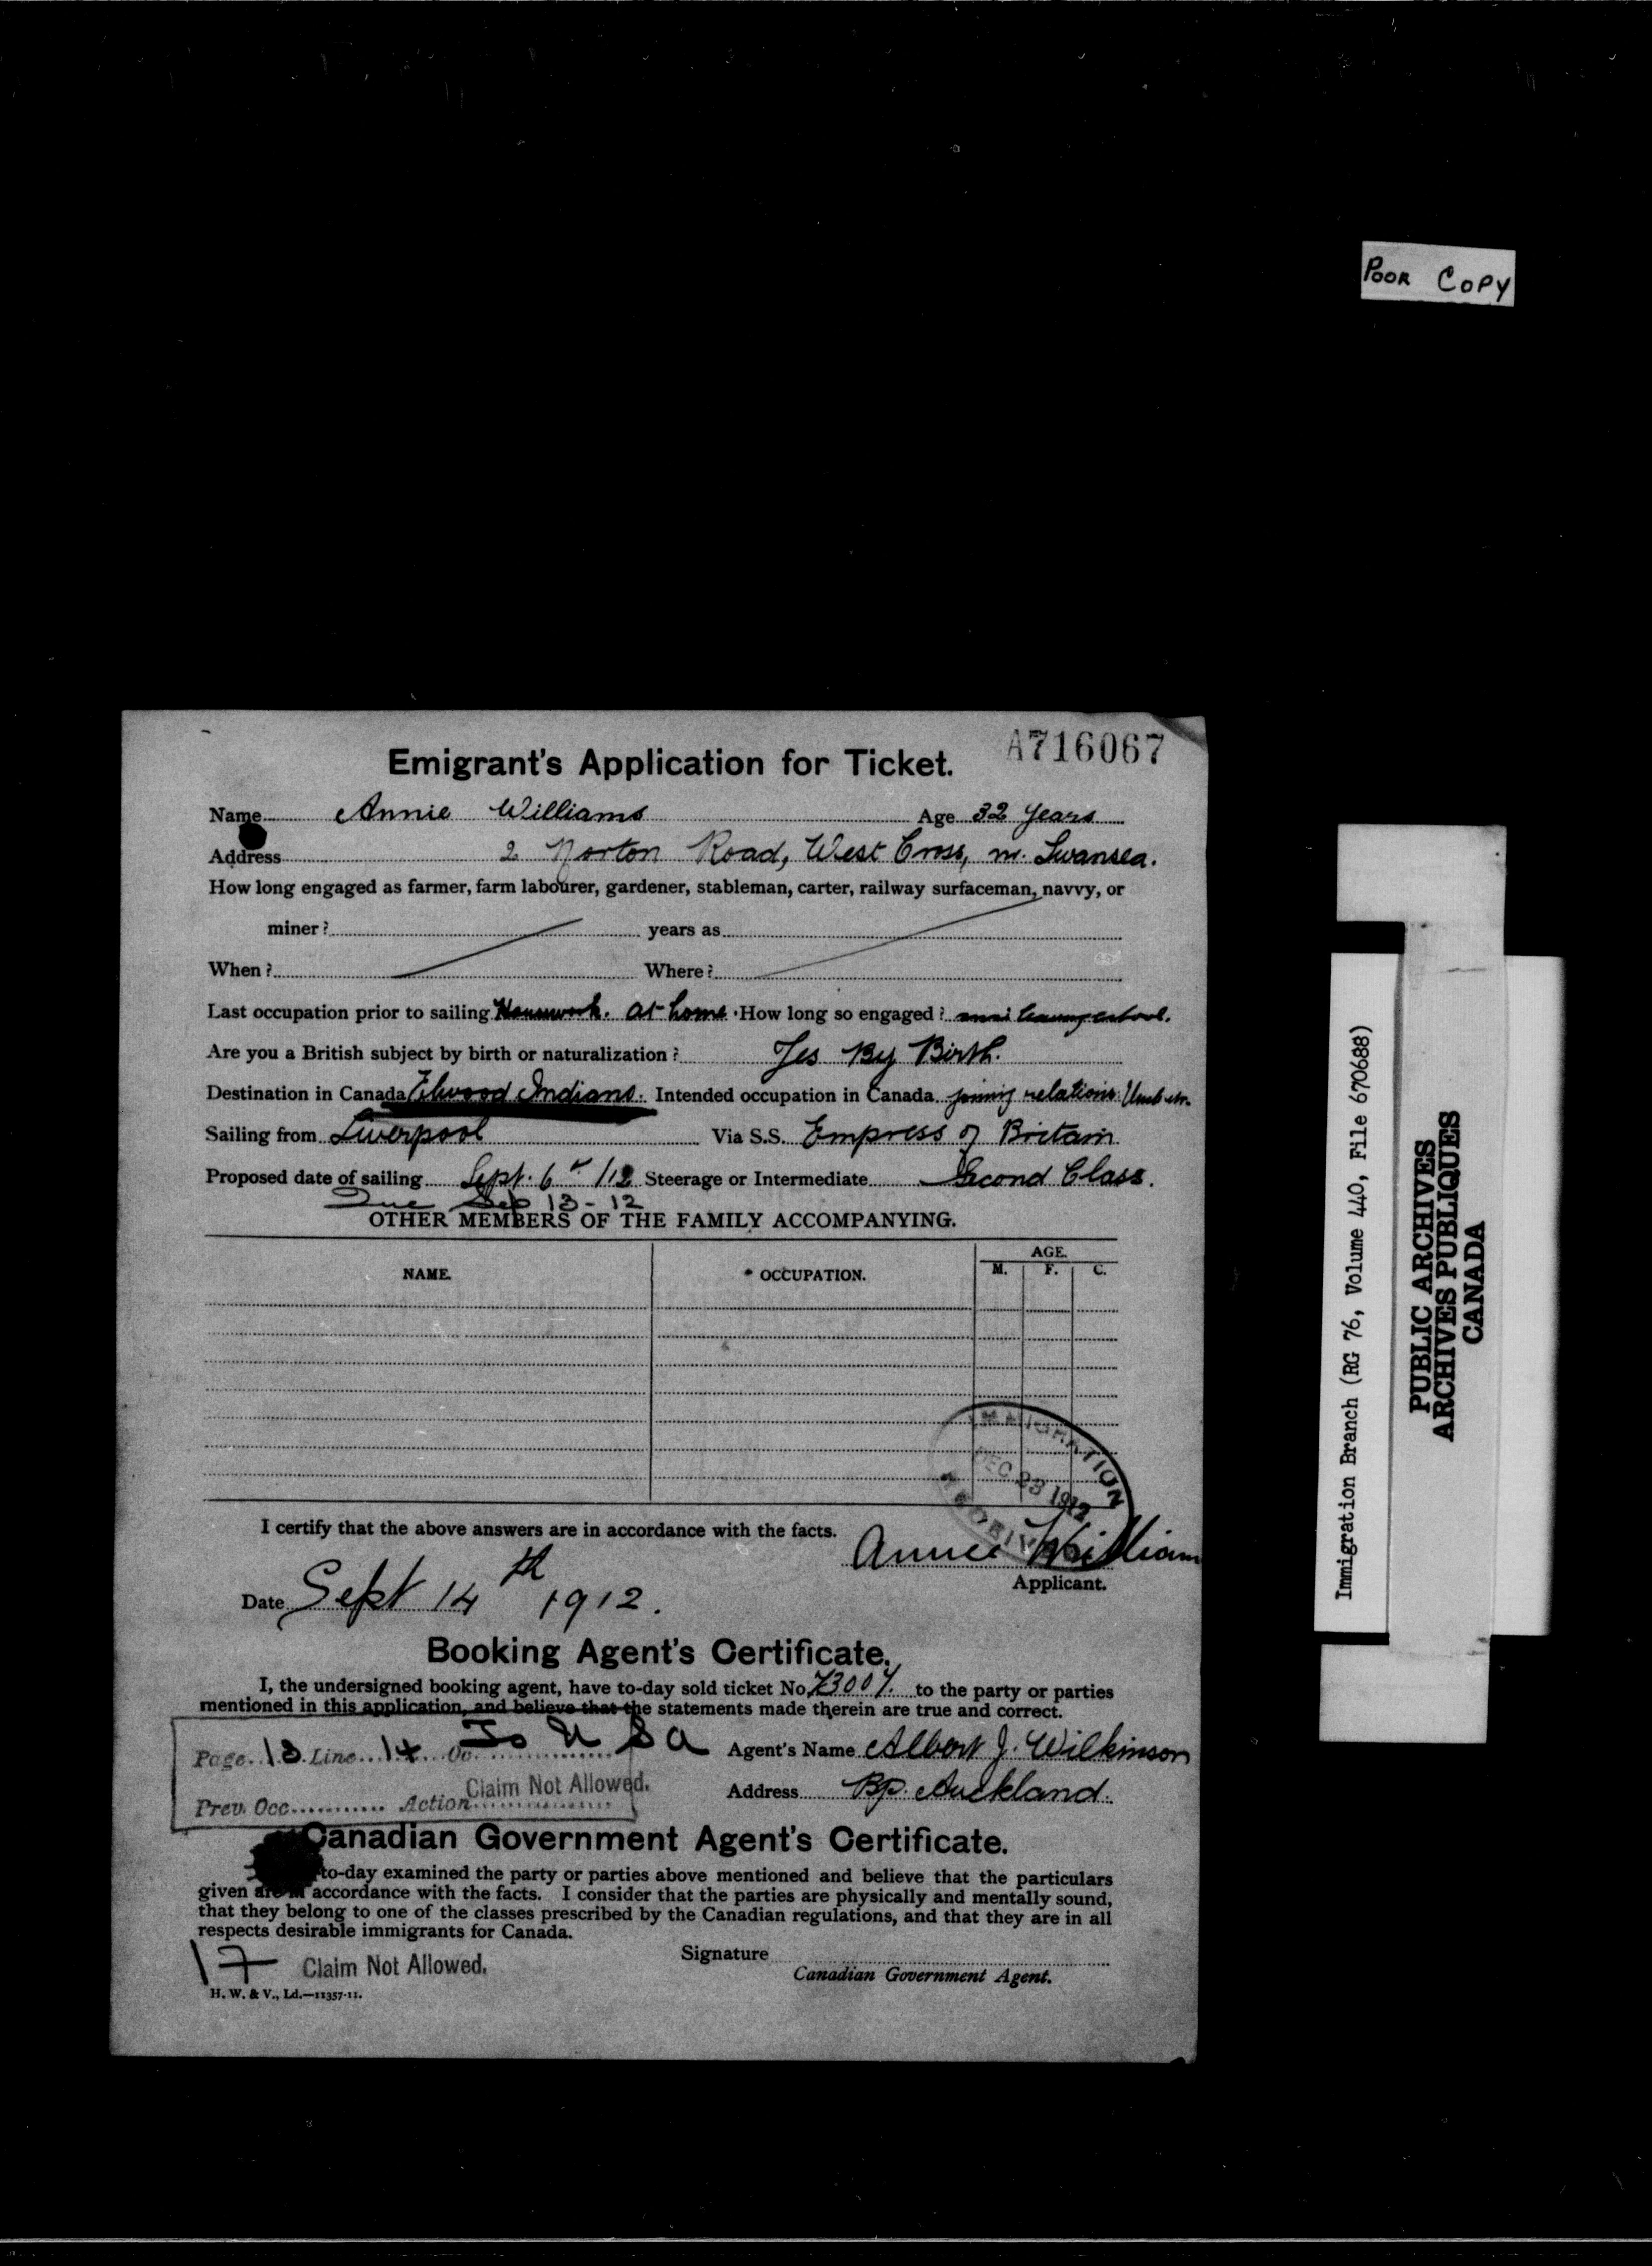 POOR COPY
A716067
Emigrant's Application for Ticket.
Name Annie Williams Age 32 years
Address 2 Norton Road, West Cross, nr. Swansea.
How long engaged as farmer, farm labourer, gardener, stableman, carter, railway surfaceman, navvy, or
miner? years as
When? Where?
Last occupation prior to sailing Housework. at home. How long so engaged? leaving school.
Are you a British subject by birth or naturalization? Yes By Birth.
Destination in Canada Elwood Indiana. Intended occupation in Canada joining relations
Sailing from Liverpool Via S.S. Empress of Britain
Proposed date of sailing Sept. 6th /12 Steerage or Intermediate Second Class.
Due Sep 13-12
OTHER MEMBERS OF THE FAMILY ACCOMPANYING.
NAME. OCCUPATION. AGE.
M. F. C.
IMMIGRATION
DEC 23 1912
I certify that the above answers are in accordance with the facts.
Annie William
Applicant.
Date Sept 14th 1912.
Booking Agent's Certificate.
I, the undersigned booking agent, have to-day sold ticket No. to the party or parties
mentioned in this application, and believe that the statements made therein are true and correct.
To U S A
Page 13 Line 14 Oc. Agent's Name Albert J. Wilkinson
Prev. Occ. Action Claim Not Allowed. Address Bp. Auckland.
Canadian Government Agent's Certificate.
to-day examined the party or parties above mentioned and believe that the particulars
given are in accordance with the facts. I consider that the parties are physically and mentally sound,
that they belong to one of the classes prescribed by the Canadian regulations, and that they are in all
respects desirable immigrants for Canada.
17 Claim Not Allowed. Signature
Canadian Government Agent.
H. W. & V., Ld.—11357-11.
Immigration Branch (RG 76, Volume 440, File 670688)
PUBLIC ARCHIVES
ARCHIVES PUBLIQUES
CANADA